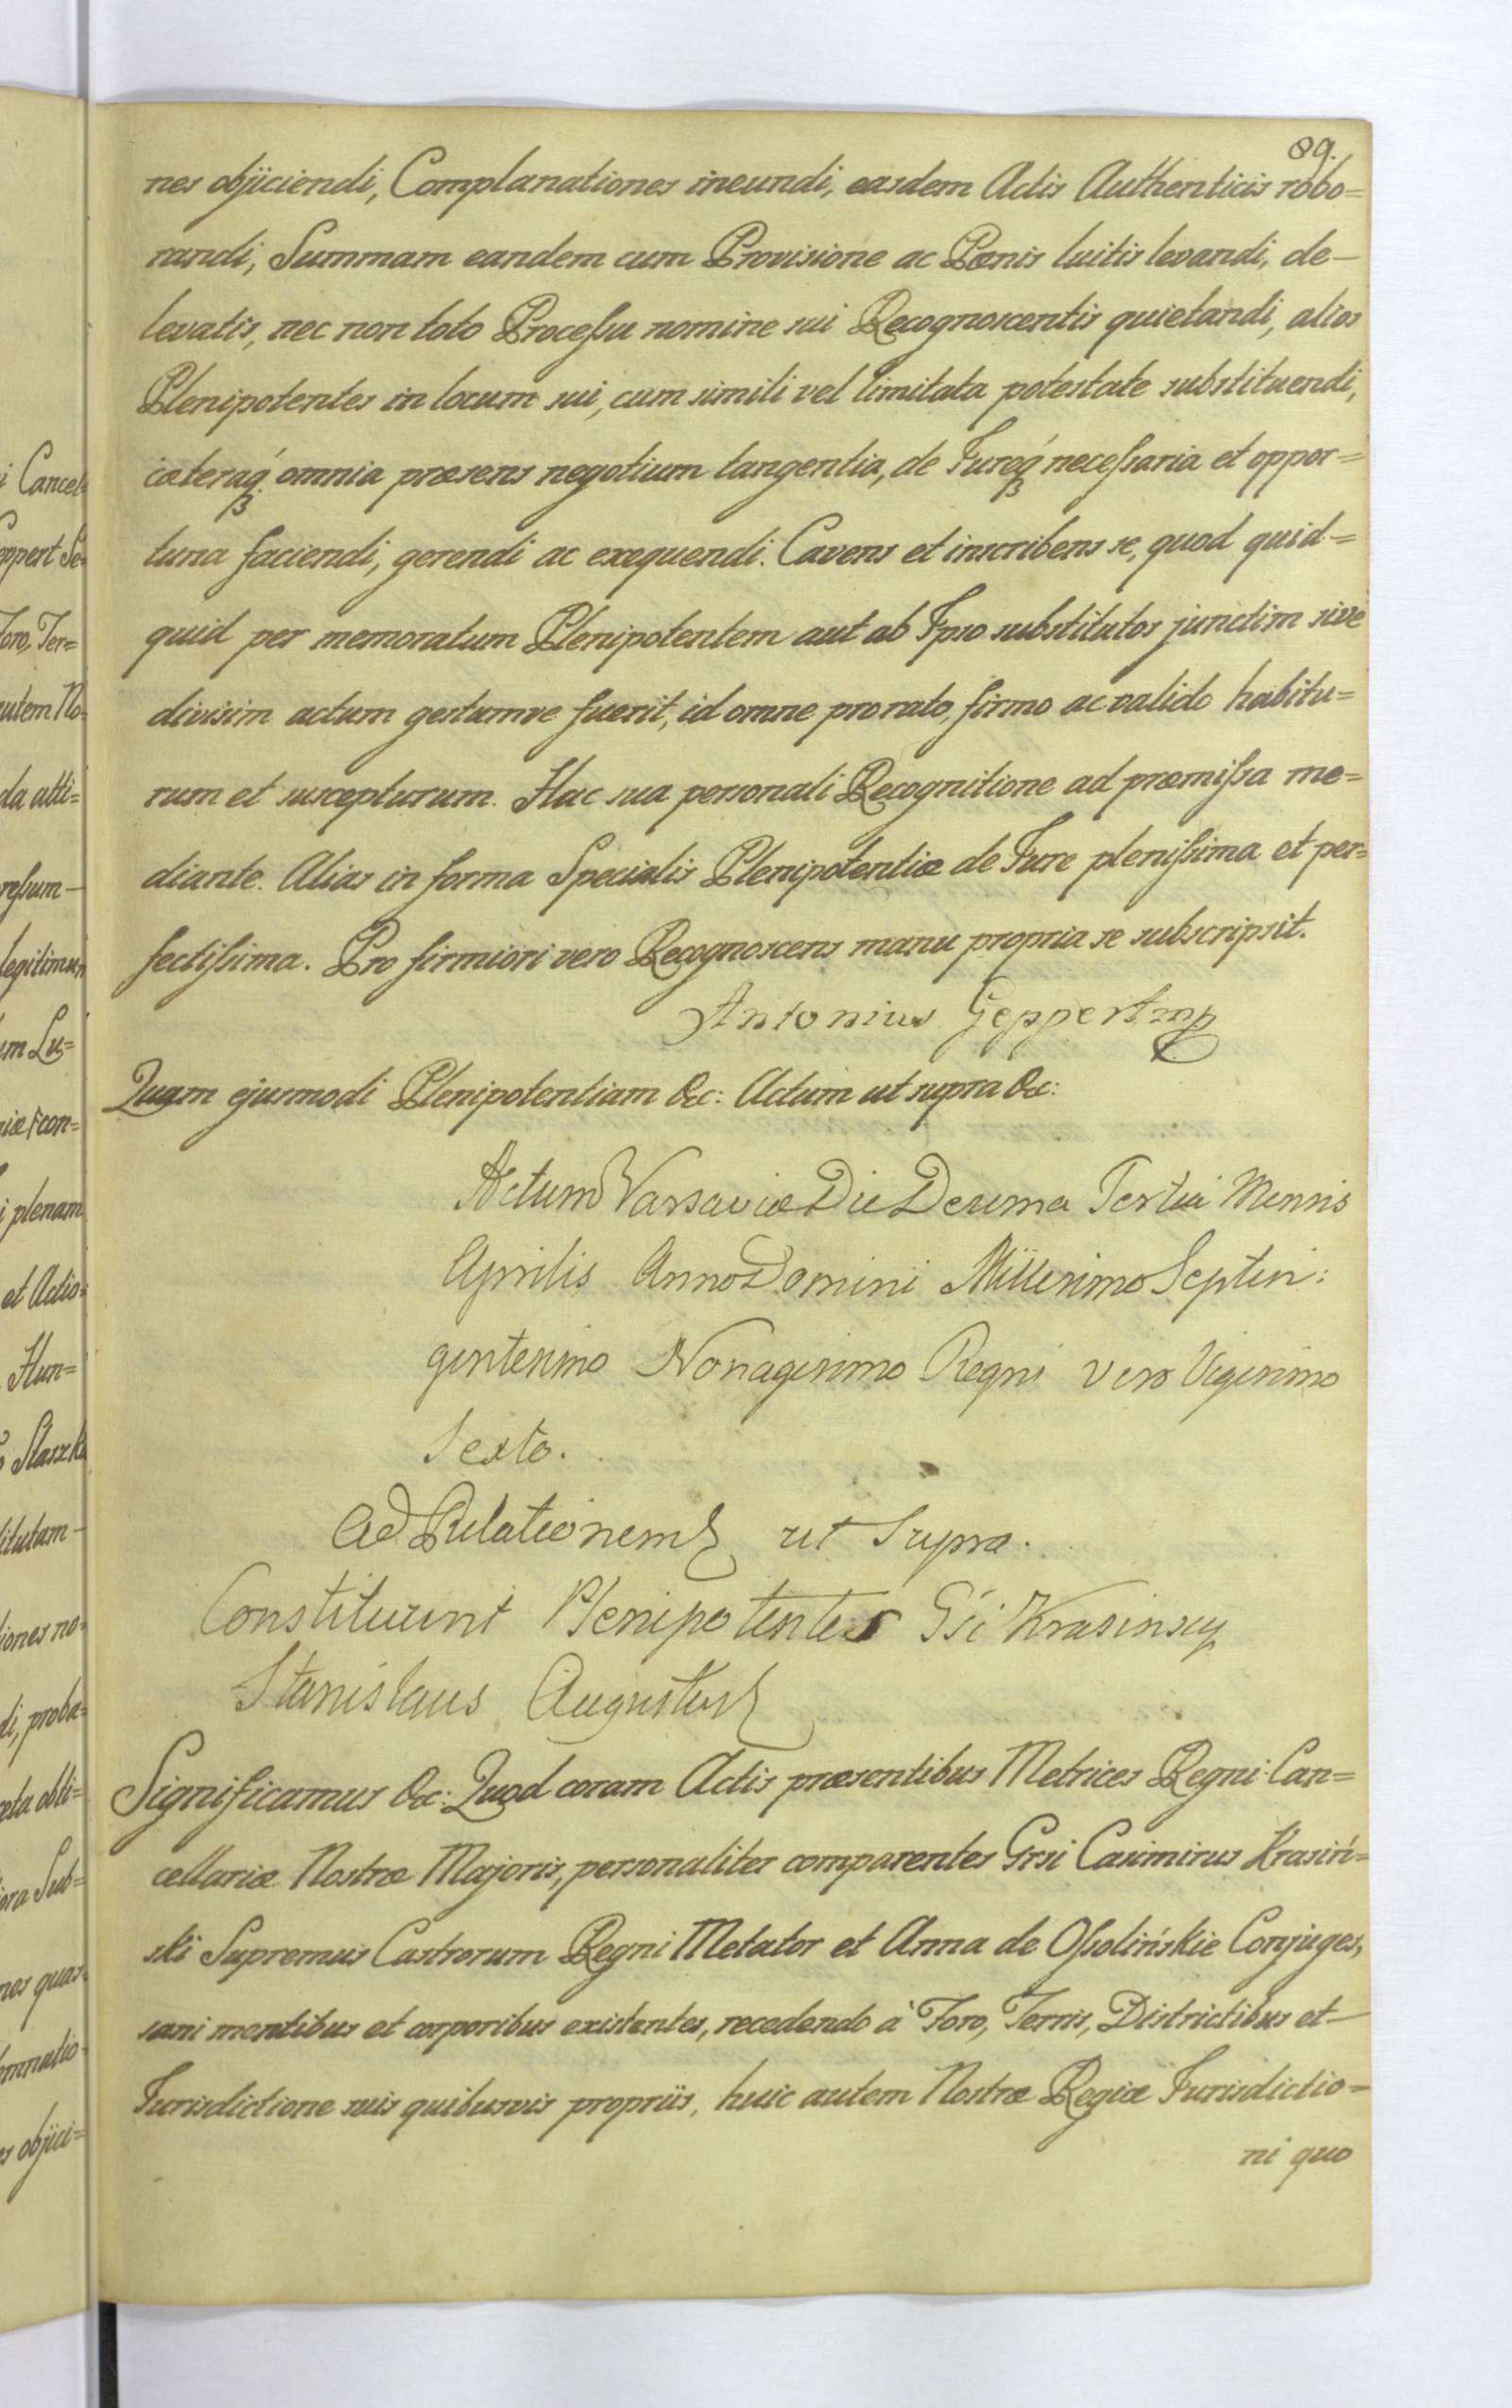 89.
nes objiciendi, Complanationes ineundi, easdem Actis Authenticis robo=
randi, Summam eandem cum Provisione ac Pœnis luitis levandi, de-
levatis, nec non toto Processu nomine sui Recognoscentis quietandi, alios
Plenipotentes in locum sui, cum simili vel limitata potestate substituendi,
cæteraq́ omnia præsens negotium tangentia, de Jureq́ necessaria et oppor=
tuna faciendi, gerendi ac exequendi. Cavens et inscribens se, quod quid-=
quid per memoratum Plenipotentem aut ab Ipso substitutos junctim sive
divisim actum gestumve fuerit, id omne pro rato, firmo ac valido habitu=
rum et suscepturum. Hac sua personali Recognitione ad præmissa me=
diante. Alias in forma Specialis Plenipotentiæ de Jure plenissima et per=
fectissima. Pro firmiori vero Recognoscens manu propria se subscripsit.
Antonius Geppert mp
Quam ejusmodi Plenipotentiam &c: Actum ut supra &c:
Actum Varsaviæ Die Decima Tertia Mensis
Aprilis Anno Domini Millesimo Septin:
gentesimo Nonagesimo Regni vero Vigesimo
Sexto.
Ad Relationem ut supra.
Constituunt Plenipotentes Gsi Krasinscy
Stanislaus Augustus
Significamus &c: Quod coram Actis præsentibus Metrices Regni Can=
cellariæ Nostræ Majoris, personaliter comparentes Grsi Casimirus Krasiń=
ski Supremus Castrorum Regni Metator et Anna de Ossolińskie Conjuges,
sani mentibus et corporibus existentes, recedendo à Foro, Terris, Districtibus et-
Jurisdictione suis quibusvis propriis, huic autem Nostræ Regiæ Jurisdictio=
ni quo